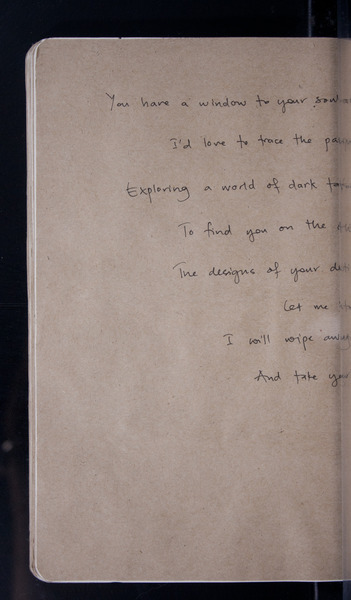 You have a window to your
I'd love to trace the
Exploring a world of dark
To find you on the
The designs of your
Let me
I will wipe away
And take your